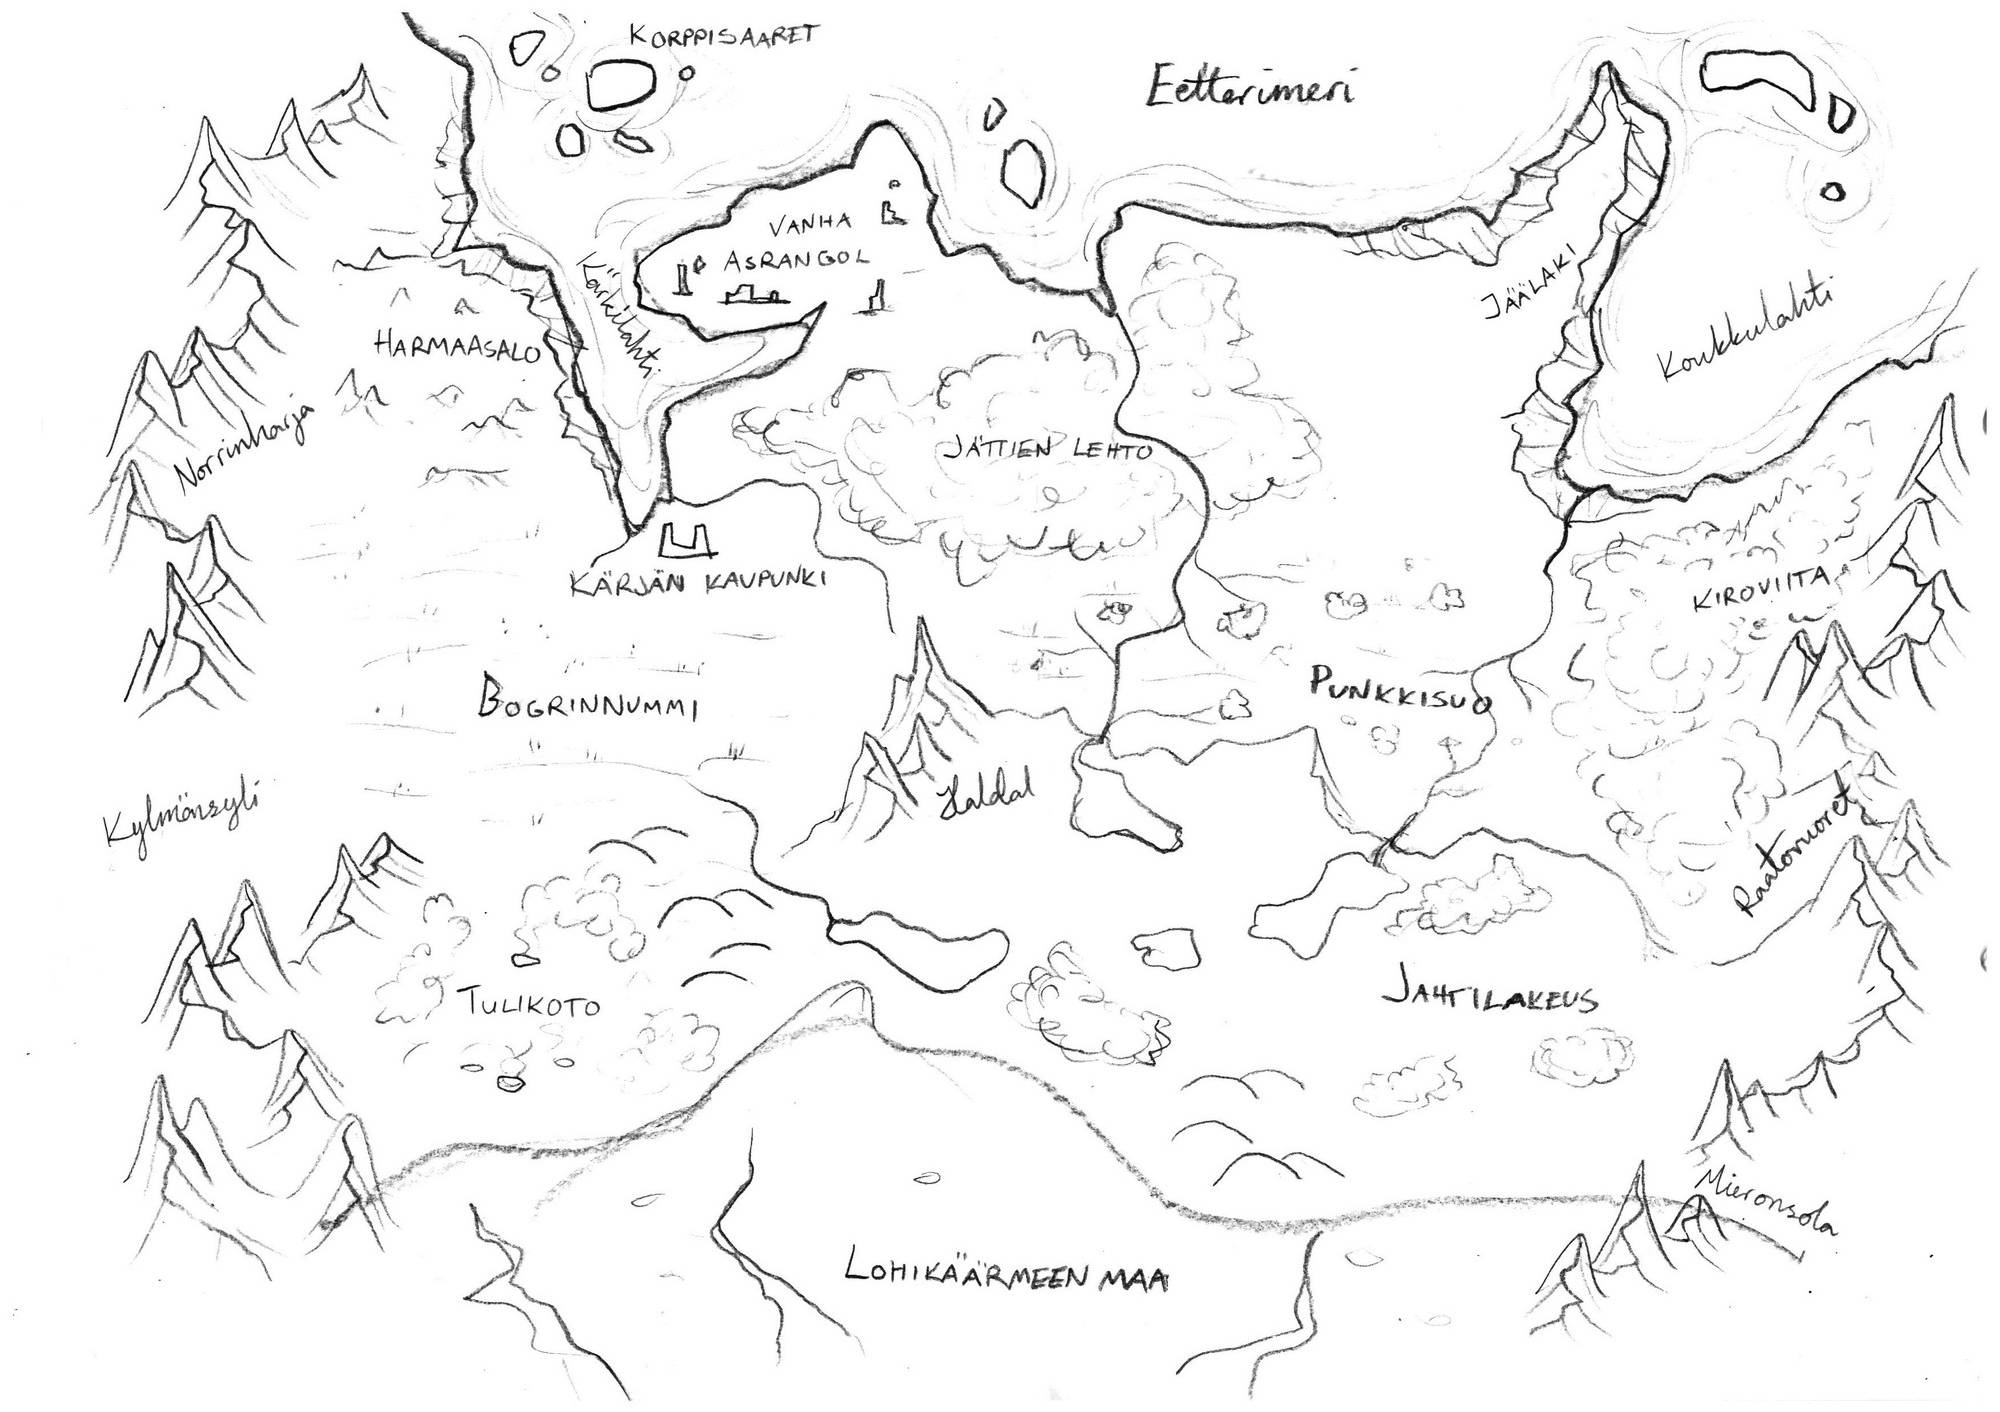 KORPPISAARET
Eetterimeri
VANHA
ASRANGOL
Kärkilahti
JÄÄLAKI
Koukkulahti
HARMAASALO
Norrinharja
JÄTTIEN LEHTO
KÄRJÄN KAUPUNKI
KIROVIITA
BOGRINNUMMI
PUNKKISUO
Kylmänsyli
Haldal
Raatovuoret
TULIKOTO
JAHTILAKEUS
Mieronsola
LOHIKÄÄRMEEN MAA